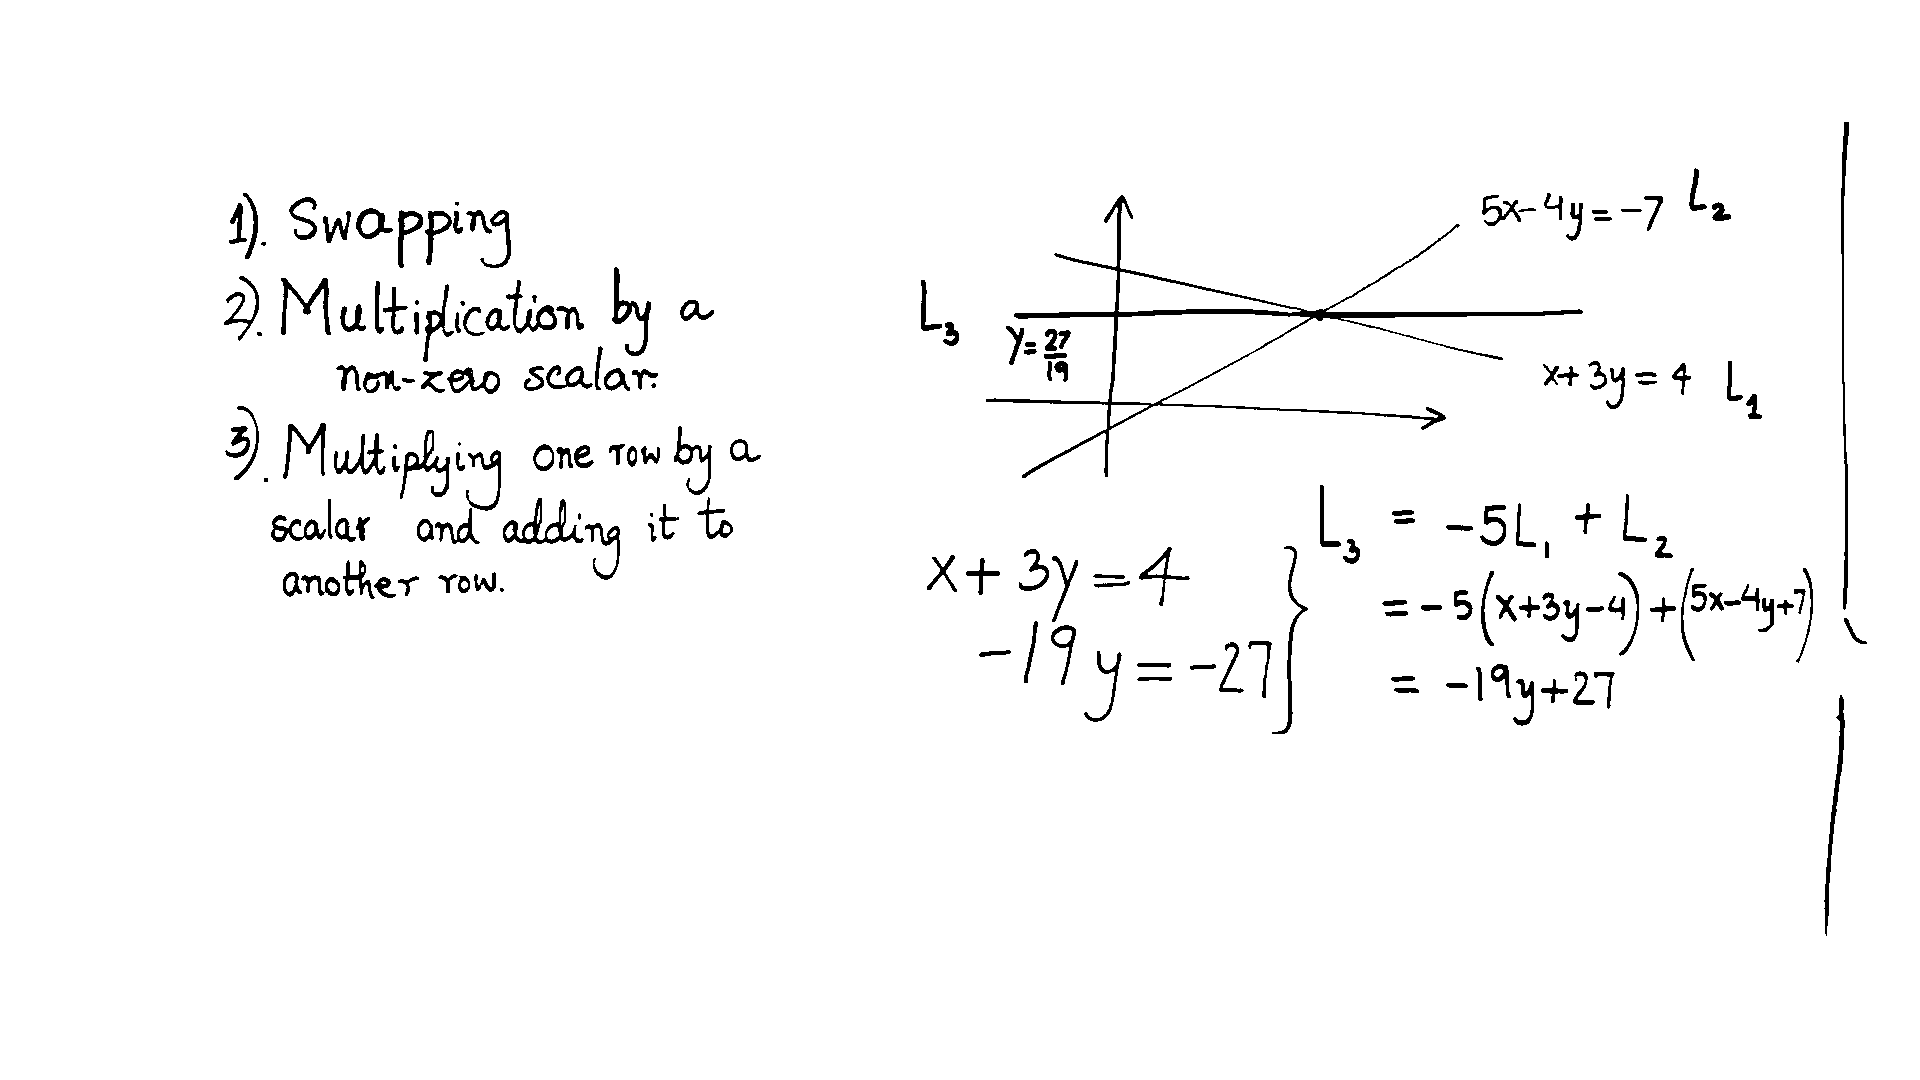 1). Swapping
2). Multiplication by a
non-zero scalar.
3). Multiplying one row by a
scalar and adding it to
another row.
5x-4y=-7 L₂
L₃
y=27/19
x+3y=4 L₁
L₃ = -5L₁ + L₂
= -5(x+3y-4)+(5x-4y+7)
= -19y+27
x+3y=4
-19y=-27